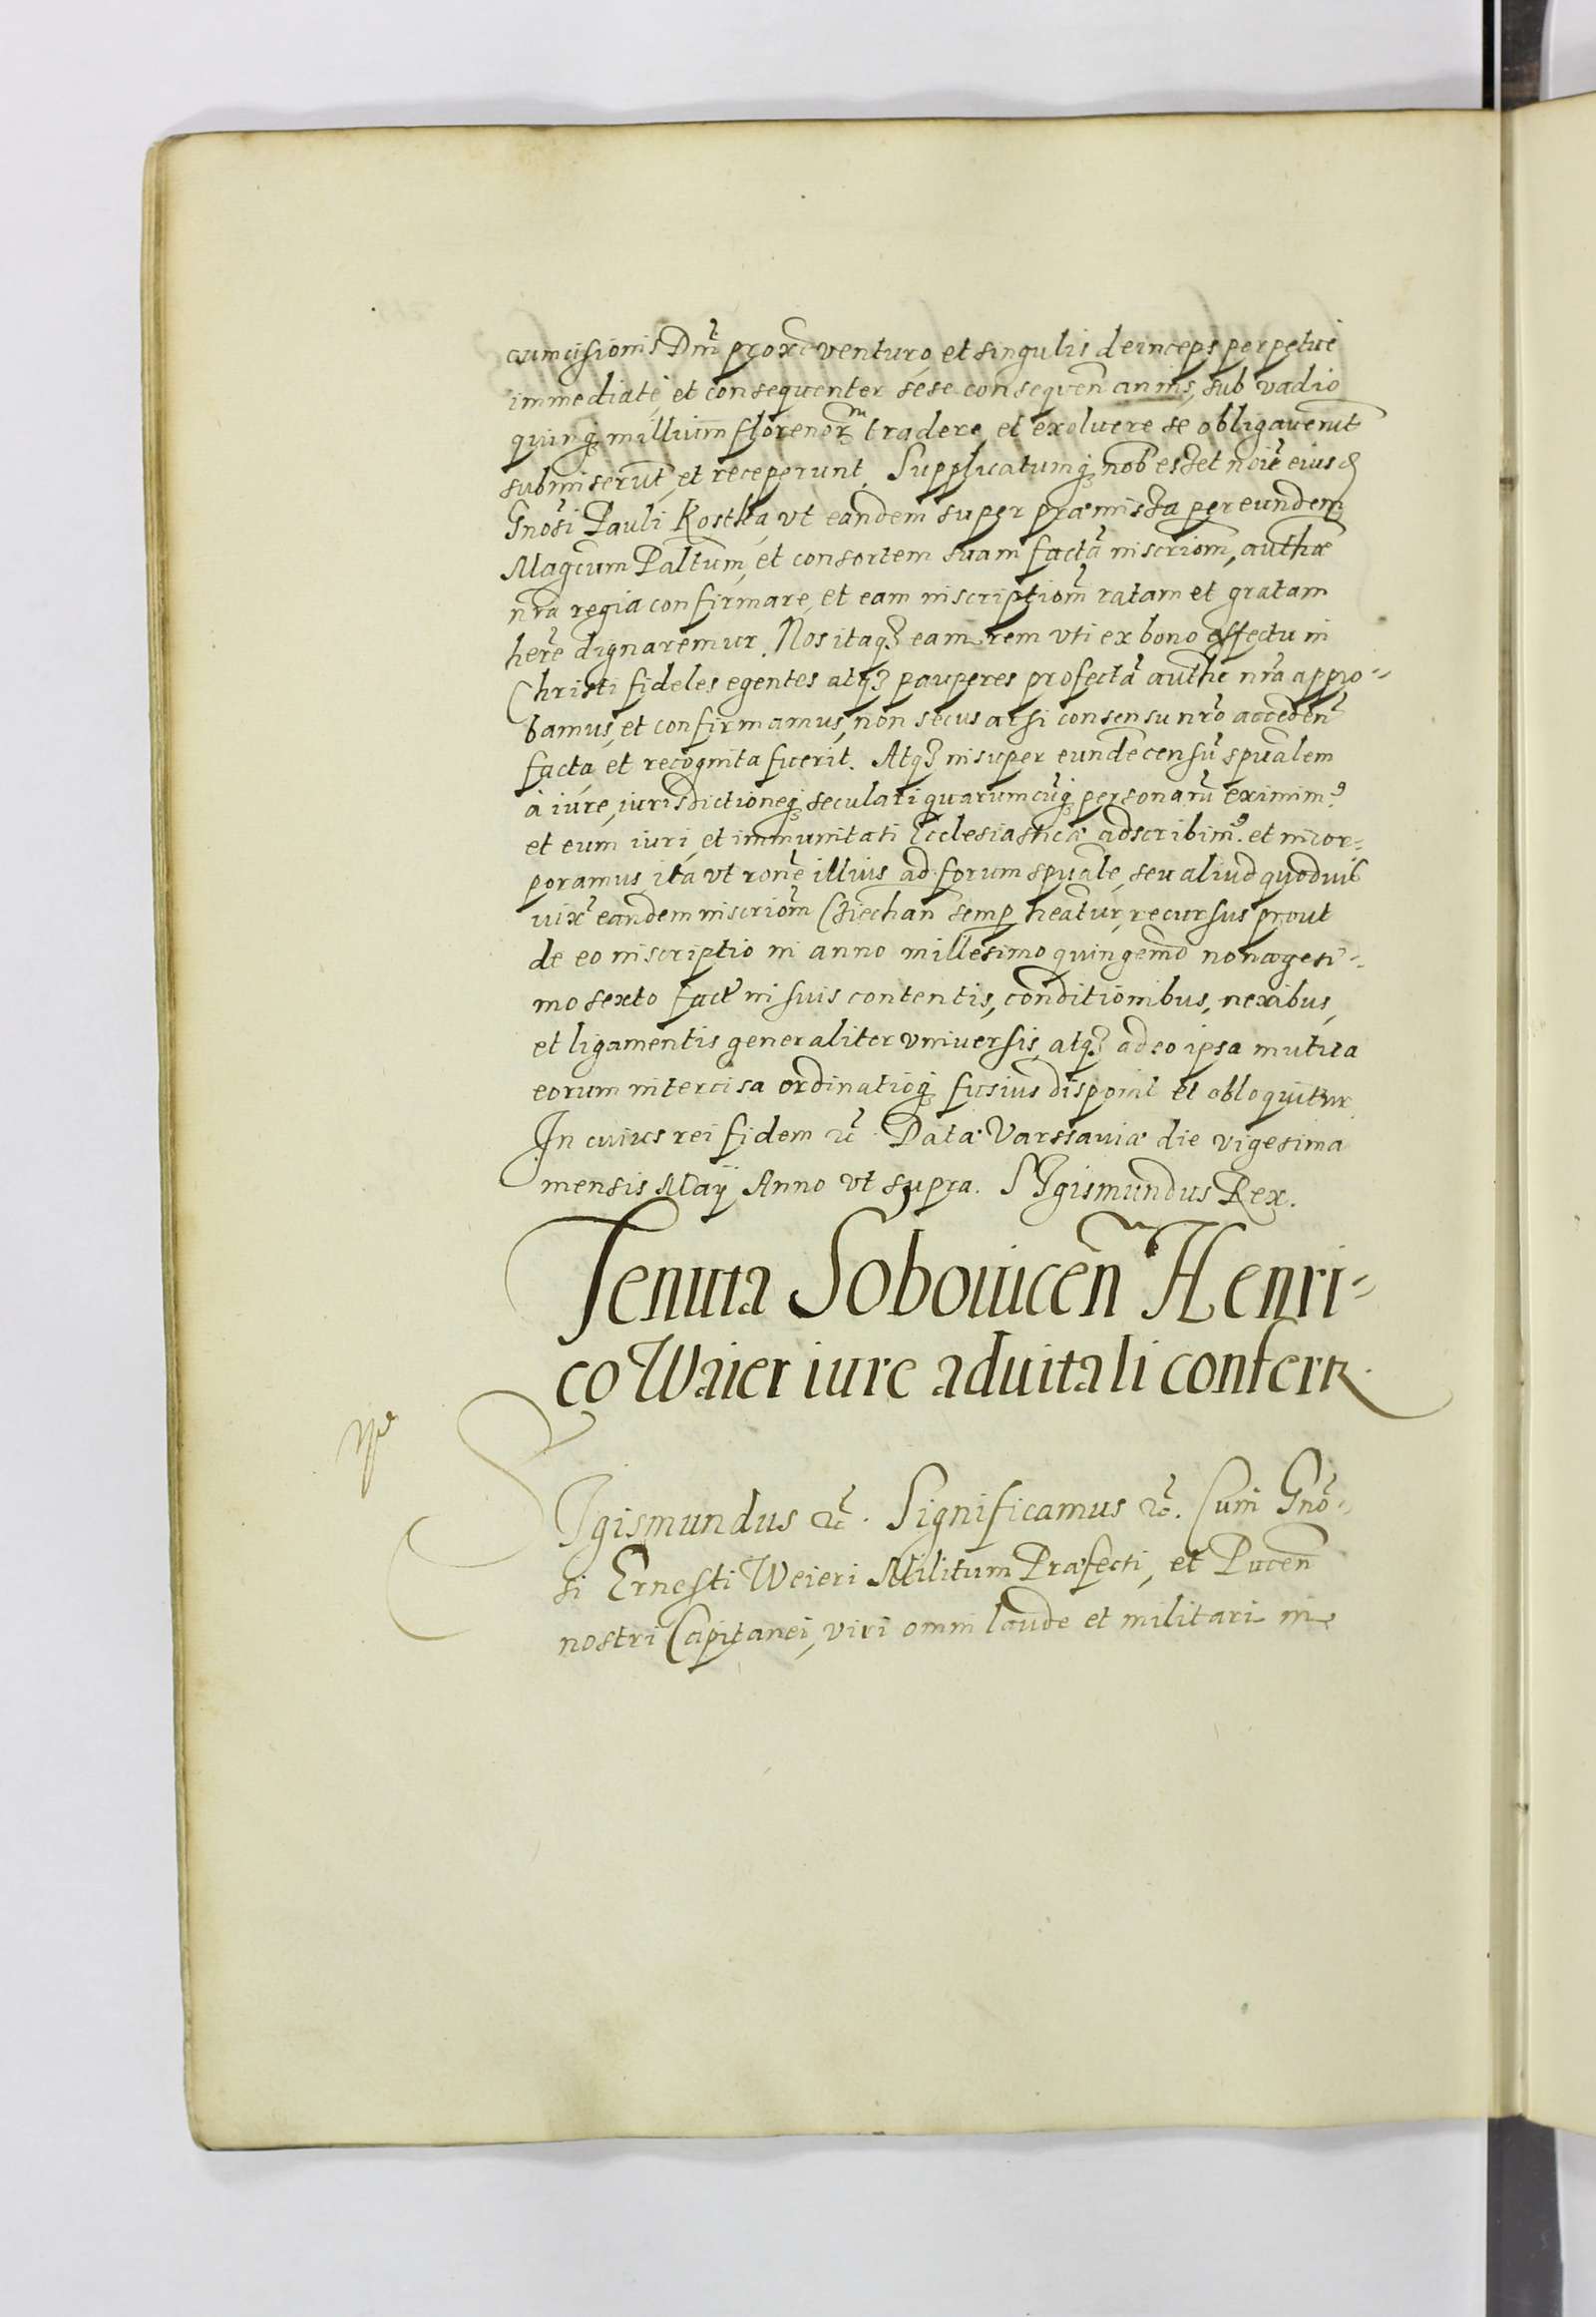 cumcisionis Dni proxe venturo, et singulis deinceps perpetue
immediatè, et consequenter sese consequen annis, sub vadio
quinq; millium florenorm tradere, et exoluere se obligauerut
submiserut, et receperunt. Supplicatumq; nob esset noie eiusd
Gnosi Pauli Kostka, vt eandem super præmissa per eundem
Magcum Paltum, et consortem suam factā inscriom, authae
nra regia confirmare, et eam inscriptiom ratam et gratam
here dignaremur. Nos itaq3 eam rem vti ex bono affectu in
Christi fideles egentes atq3 pauperes profectā authe nra appro-
bamus, et confirmamus, non secus acsi consensu nro acceden
facta, et recognita fuerit. Atq3 insuper eunde censū spualem
à iure, iurisdictioneq; seculari quarumcūq; personarū eximim9
et eum iuri, et immunitati Ecclesiasticæ adscribim9. et incor-
poramus, ita vt rone illius ad forum spuale, seu aliud quoduis
iux eandem inscriom Cziechan semp heatur, recursus prout
de eo inscriptio in anno millesimo quingemo nonagesi-
mo sexto fact in suis contentis, conditionibus, nexibus,
et ligamentis generaliter vniuersis, atq3 adeo ipsa mutua
eorum intercisa ordinatioq; fusius disponit et obloquitur
In cuius rei fidem &c. Datæ Varssauiæ die vigesima
mensis Maÿ Anno vt supra. SIgismundus Rex.
Tenuta Sobouicēn Henri-
co Waier iure aduitali confertr.
SIgismundus &c. Significamus &c. Cum Gno-
si Ernesti Weieri Militum Præfecti, et Pucen
nostri Capitanei, viri omni laude et militari in